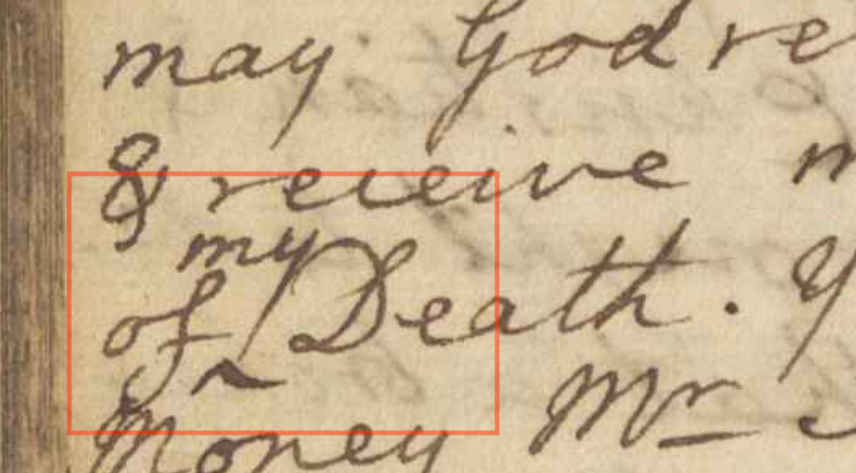 may God re
& receive m
of my Death. Y
Money Mr